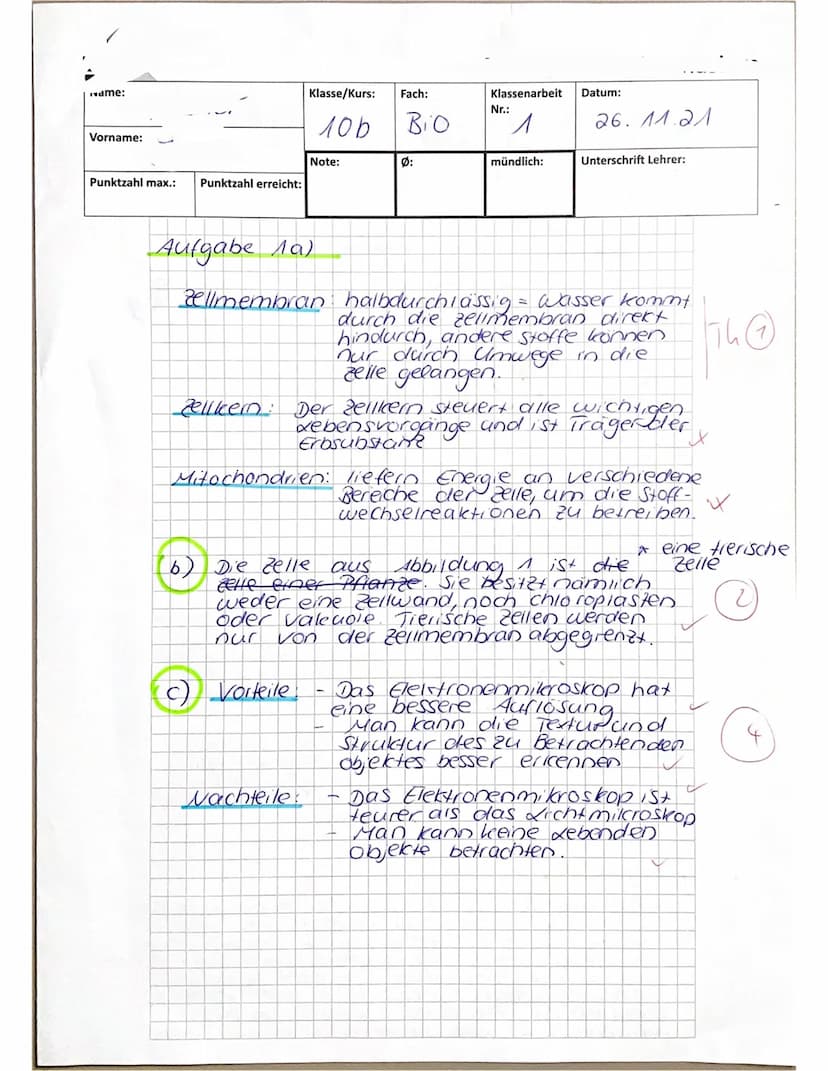 Name:
Klasse/Kurs:
Fach:
Klassenarbeit Nr.:
Datum:
10b
BiO
1
26.11.21
Vorname:
Note:
Ø:
mündlich:
Unterschrift Lehrer:
Punktzahl max.:
Punktzahl erreicht:
Aufgabe 1a)
Zellmembran: halbdurchlässig = Wasser kommt
durch die Zellmembran direkt
hindurch, andere Stoffe können
nur durch Umwege in die
Zelle gelangen.
1
Zellkern: Der Zellkern steuert alle wichtigen
Lebensvorgänge und ist Träger der
Erbsubstanz
Mitochondrien: liefern Energie an verschiedene
Bereiche der Zelle, um die Stoff-
wechselreaktionen zu betreiben.
* eine tierische
Zelle
b) Die Zelle aus Abbildung 1 ist die
Zelle einer Pflanze. Sie besitzt nämlich
weder eine Zellwand, noch Chloroplasten
oder Valcuole. Tierische Zellen werden
nur von der Zellmembran abgegrenzt.
2
c) Vorteile: - Das Elektronenmikroskop hat
eine bessere Auflösung
- Man kann die Textur und
Struktur des zu Betrachtenden
Objektes besser erkennen
4
Nachteile: - Das Elektronenmikroskop ist
teurer als das Lichtmikroskop
- Man kann keine Lebenden
Objekte betrachten.